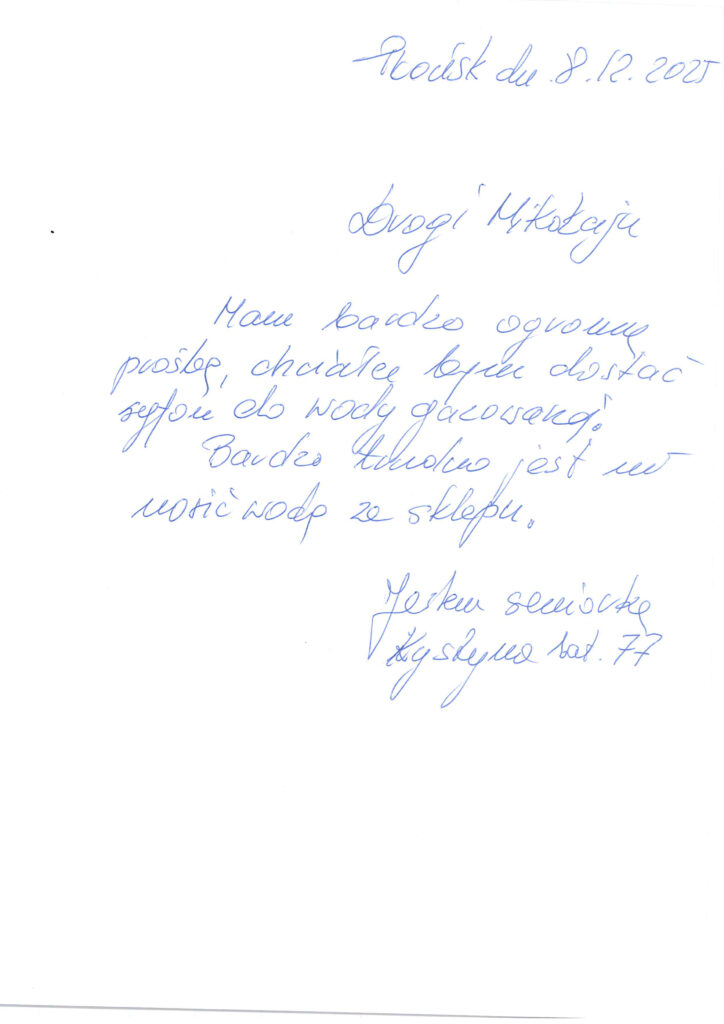 dn. 8.12.2025
Drogi Mikołaju
Mam bardzo ogromną
prośbę, chciała bym dostać
syfon do wody gazowanej.
Bardzo trudno jest mi
nosić wodę ze sklepu.
Jestem seniorką
Krystyna lat. 77